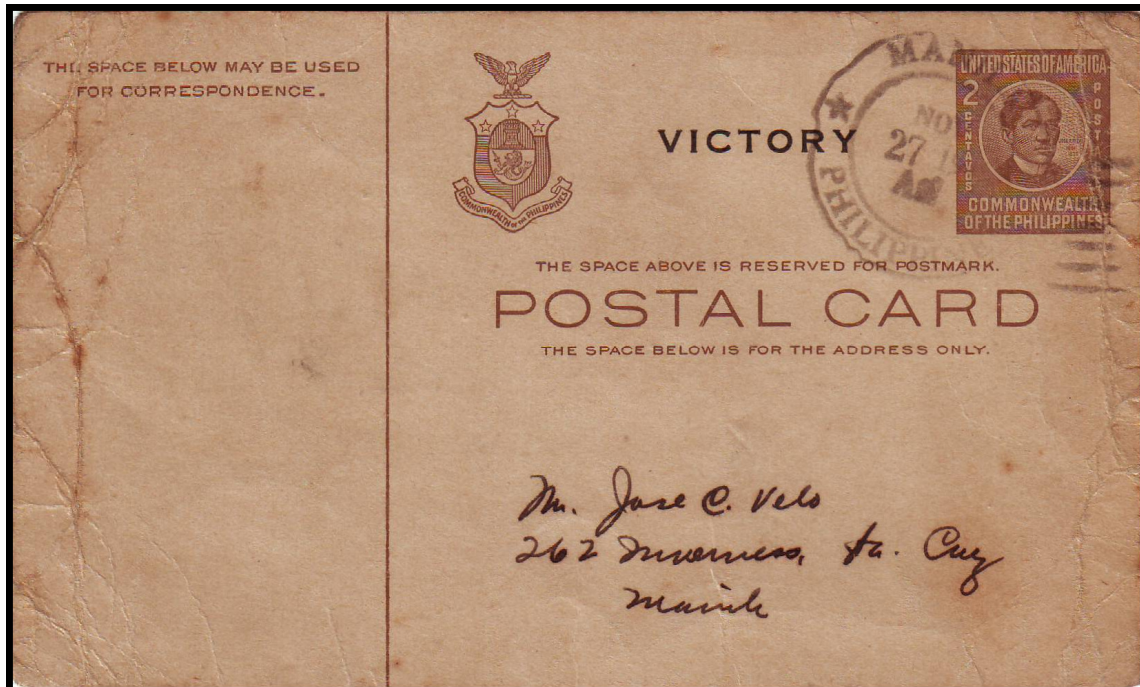 THE SPACE BELOW MAY BE USED
FOR CORRESPONDENCE.
COMMONWEALTH OF THE PHILIPPINES
VICTORY
PHILIPPI
NO
27
AM
UNITED STATES OF AMERICA
2
CENTAVOS
POST
COMMONWEALTH
OF THE PHILIPPINES
THE SPACE ABOVE IS RESERVED FOR POSTMARK.
POSTAL CARD
THE SPACE BELOW IS FOR THE ADDRESS ONLY.
Mr. Jose C. Velo
262 Inverness, Sta. Cruz
Manila